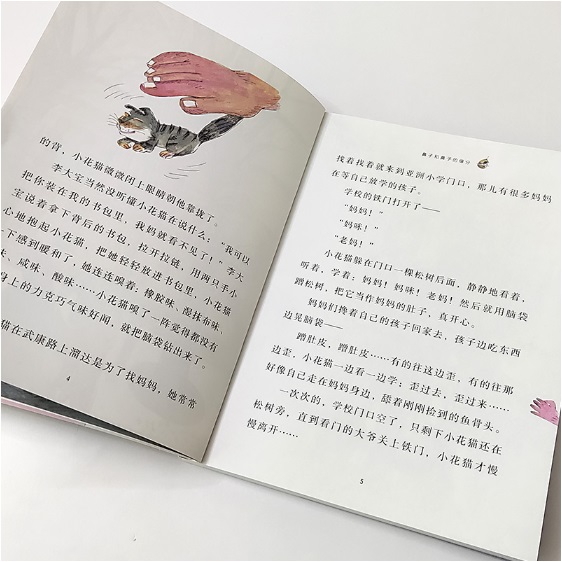 的背，小花猫微微闭上眼睛朝他靠拢了。
李大宝当然没听懂小花猫在说什么：“我可以
把你装在我的书包里，我妈就看不见了！”李大
宝说着拿下背后的书包，拉开拉链，用两只手小
心地抱起小花猫，把她轻轻放进书包里，小花猫
下感到暖和了，她连连嗅着：橡胶味、湿抹布味、
味、咸味、酸味……小花猫嗅了一阵觉得都没有
身上的力克巧气味好闻，就把脑袋钻出来了。
猫在武康路上溜达是为了找妈妈，她常常
4
找着找着就来到亚洲小学门口，那儿有很多妈妈
在等自己放学的孩子。
学校的铁门打开了——
“妈妈！”
“妈咪！”
“老妈！”
小花猫躲在门口一棵松树后面，静静地看着，
听着，学着：妈妈！妈咪！老妈！然后就用脑袋
蹭松树，把它当作妈妈的肚子，真开心。
妈妈们搀着自己的孩子回家去，孩子边吃东西
边晃脑袋——
蹭肚皮，蹭肚皮……有的往这边歪，有的往那
边歪，小花猫一边看一边学：歪过去，歪过来……
好像自己走在妈妈身边，舔着刚刚捡到的鱼骨头。
一次次的，学校门口空了，只剩下小花猫还在
松树旁，直到看门的大爷关上铁门，小花猫才慢
慢离开……
5